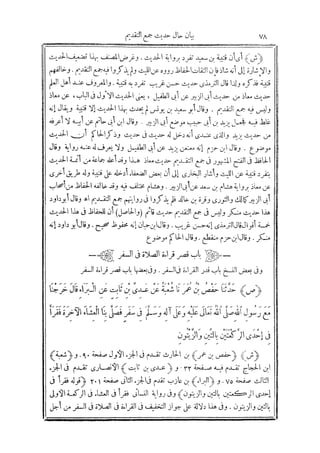 ٧٨ بيان حال حديث جمع التقديم
(ش) أى أن قتيبة بن سعيد تفرد برواية الحديث. وغرض المصنف بهذا تضعيف الحديث
والإشارة إلى أنه شاذ فإن الثقات الحفاظ رووه عن الليث ولم يذكروا فيه جمع التقديم. وخالفهم
قتيبة فذكره ولذا قال الترمذى حديث حسن غريب تفرد به قتيبة. والمعروف عند أهل العلم
حديث معاذ من حديث أبى الزبير عن أبى الطفيل، يعنى الحديث الأول فى الباب، عن معاذ
وليس فيه جمع التقديم. وقال أبو سعيد بن يونس لم يحدث بهذا الحديث إلا قتيبة ويقال إنه
غلط فيه فجعل يزيد بن أبى حبيب موضع أبى الزبير. وقال ابن أبى حاتم عن أبيه لا أعرفه
من حديث يزيد والذى عندى أنه دخل له حديث فى حديث وذكر الحاكم أن الحديث
موضوع. وقال ابن حزم إنه معنعن يزيد عن أبى الطفيل ولا يعرف له عنه رواية وقال
الحافظ فى الفتح المشهور فى جمع التقديم حديث معاذ هذا وقد أعله جماعة من أئمة الحديث
بتفرد قتيبة عن الليث وأشار البخارى إلى أن بعض الضعفاء أدخله على قتيبة وله طريق أخرى
عن معاذ برواية هشام بن سعد عن أبى الزبير. وهشام مختلف فيه وقد خالفه الحفاظ من أصحاب
أبى الزبير كمالك والثورى وقرة بن خالد فلم يذكروا فى روايتهم جمع التقديم اهـ وقال أبو داود
هذا حديث منكر وليس فى جمع التقديم حديث قائم (والحاصل) أن للحفاظ فى هذا الحديث
خمسة أقوال قال الترمذى إنه حسن غريب. وقال ابن حبان إنه محفوظ صحيح. وقال أبو داود إنه
منكر. وقال ابن حزم منقطع. وقال الحاكم موضوع
باب قصر قراءة الصلاة فى السفر
وفى بعض النسخ باب قدر القراءة فى السفر. وفى بعضها باب قصر قراءة السفر
(ص) حَدَّثَنَا حَفْصُ بْنُ عُمَرَ نَا شُعْبَةُ عَنْ عَدِىِّ بْنِ ثَابِتٍ عَنِ الْبَرَاءِ قَالَ خَرَجْنَا
مَعَ رَسُولِ اللهِ صَلَّى اللهُ تَعَالَى عَلَيْهِ وَعَلَى آلِهِ وَسَلَّمَ فِى سَفَرٍ فَصَلَّى بِنَا الْعِشَاءَ الآخِرَةَ فَقَرَأَ
فِى إِحْدَى الرَّكْعَتَيْنِ بِالتِّينِ وَالزَّيْتُونِ
(ش) (حفص بن عمر) بن الحارث تقدم فى الجزء الأول صفحة ٩٠. و (شعبة)
ابن الحجاج تقدم فيه صفحة ٣٢. و (عدى بن ثابت) الأنصارى تقدم فى الجزء
الثالث صفحة ٧٥. و (البراء) بن عازب تقدم فى الجزء الثانى صفحة ٢٠١ (قوله فقرأ فى
إحدى الركعتين بالتين والزيتون) وفى رواية النسائى فقرأ فى العشاء فى الركعة الأولى
بالتين والزيتون. وفى هذا دلالة على جواز التخفيف فى القراءة فى الصلاة فى السفر من أجل